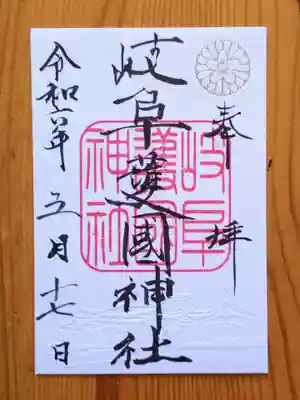 奉拝
岐阜護國神社
岐阜
護國
神社
令和六年五月十七日